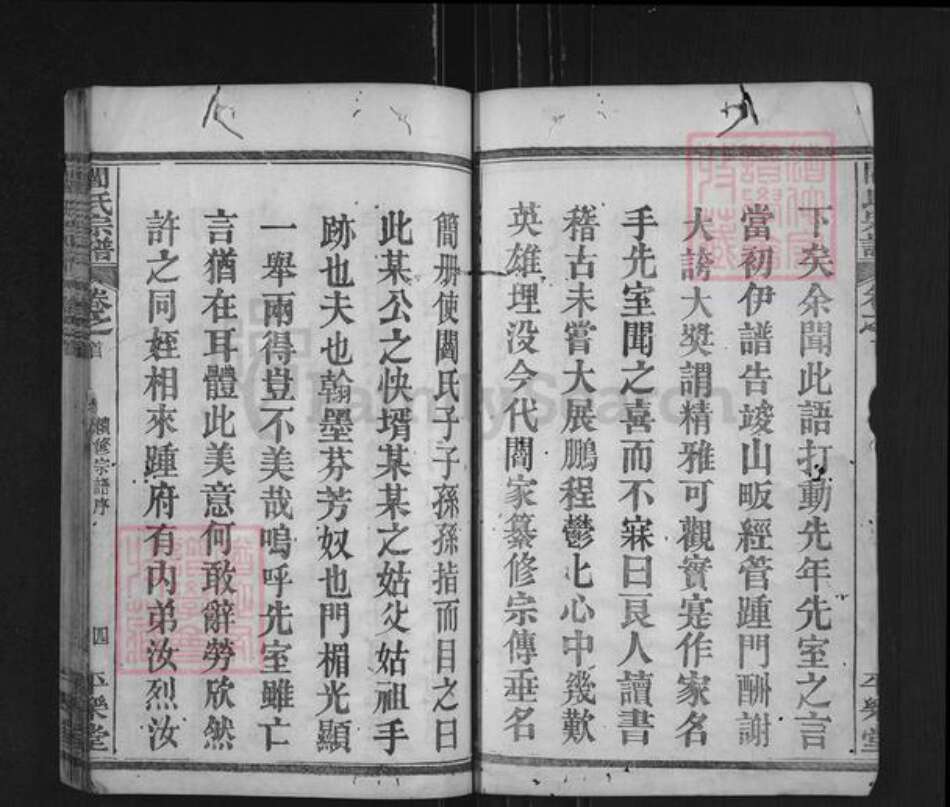 下矣余聞此語打動先年先室之言
當初伊譜告竣山畈經管踵門酬謝
大誇大獎謂精雅可觀實寔作家名
手先室聞之喜而不寐曰良人讀書
稽古未嘗大展鵬程鬱七心中幾歎
英雄埋没今代閻家纂修宗傳垂名
簡册使閻氏子子孫孫指而目之曰
此某公之快壻某某之姑父姑祖手
跡也夫也翰墨芬芳奴也門楣光顯
一舉兩得豈不美哉嗚呼先室雖亡
言猶在耳體此美意何敢辭勞欣然
許之同姪相來踵府有内弟汝烈汝
閻氏宗譜 卷之首 續修宗譜序 四 平樂堂
FamilySearch